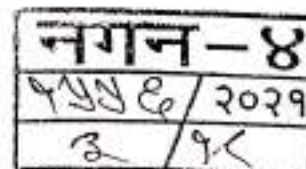 नगन-४
१५५६/२०२१
३/१८